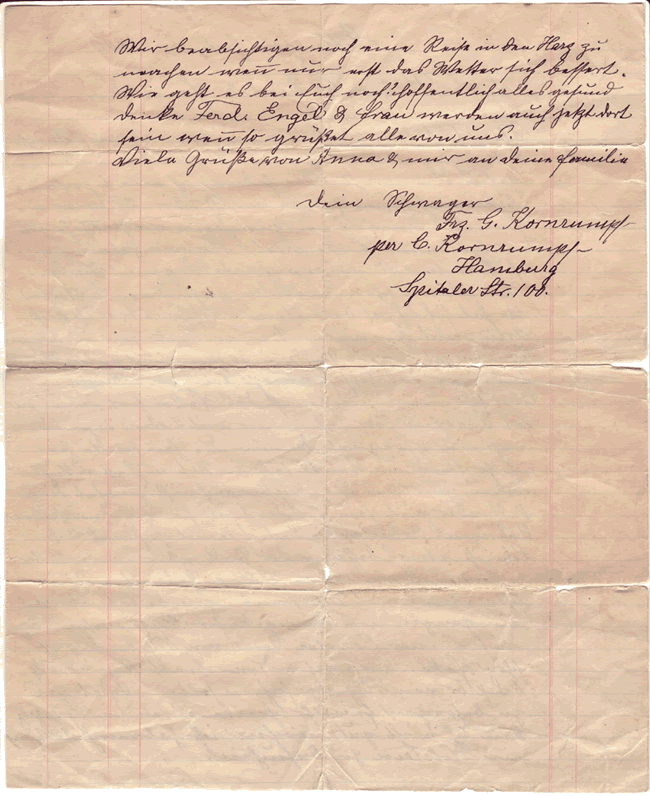 Wir beabsichtigen noch eine Reise in den Harz zu
machen wen̄ nur erst das Wetter sich bessert.
Wie geht es bei Euch noch: hoffentlich alles gesund
denke Ferd. Engel & Frau werden auch jetzt dort
sein wen̄ so grüßet alle von uns.
Viele Grüße von Anna & mir an deine Familie
Dein Schwager
Frz. G. Kornrumpf
per C. Kornrumpf
Hamburg
Spitaler Str. 100.